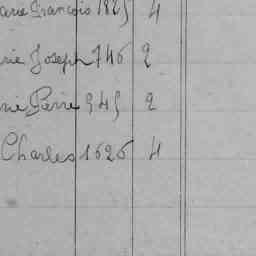 arie François 1825 4
rie Joseph 746 2
rie Pierre 945 2
Charles 1626 4